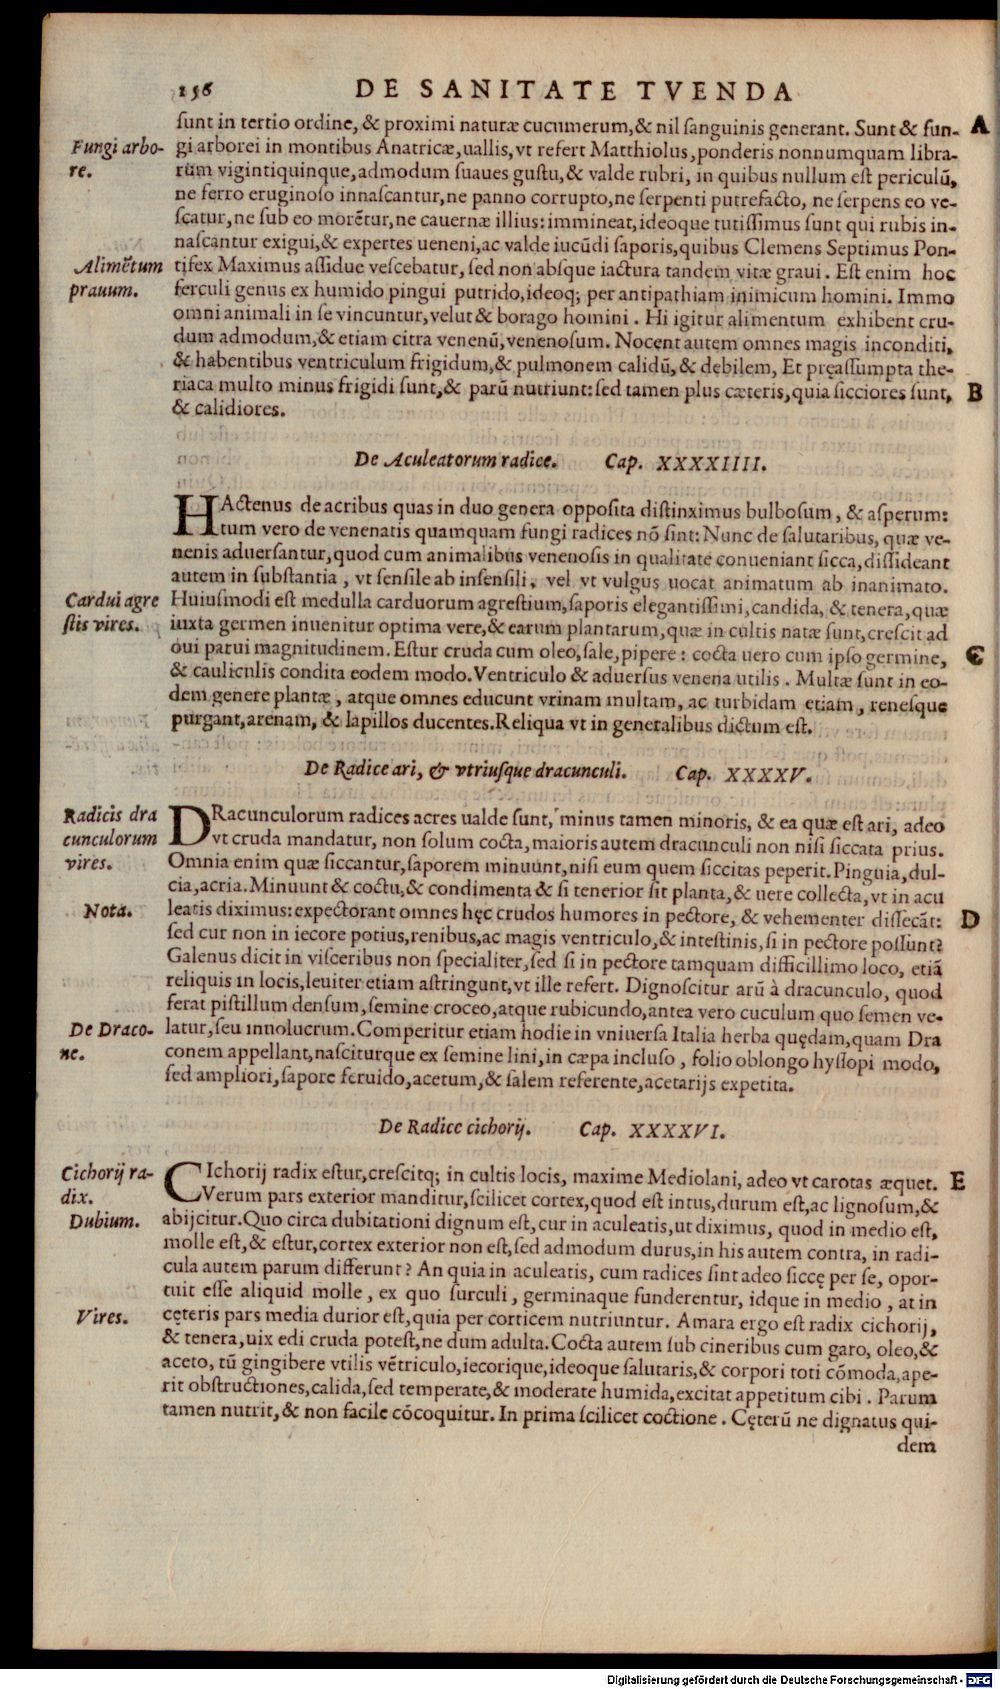 156 DE SANITATE TVENDA
sunt in tertio ordine, & proximi naturæ cucumerum, & nil sanguinis generant. Sunt & fun- A
Fungi arbo- gi arborei in montibus Anatricæ, uallis, vt refert Matthiolus, ponderis nonnumquam libra-
re. rūm vigintiquinque, admodum suaues gustu, & valde rubri, in quibus nullum est periculū,
ne ferro eruginoso innascantur, ne panno corrupto, ne serpenti putrefacto, ne serpens eo ve-
scatur, ne sub eo morētur, ne cauernæ illius: immineat, ideoque tutissimus sunt qui rubis in-
nascantur exigui, & expertes ueneni, ac valde iucūdi saporis, quibus Clemens Septimus Pon-
Alimētum tifex Maximus assidue vescebatur, sed non absque iactura tandem vitæ graui. Est enim hoc
prauum. ferculi genus ex humido pingui putrido, ideoq; per antipathiam inimicum homini. Immo
omni animali in se vincuntur, velut & borago homini. Hi igitur alimentum exhibent cru-
dum admodum, & etiam citra venenū, venenosum. Nocent autem omnes magis inconditi,
& habentibus ventriculum frigidum, & pulmonem calidū, & debilem, Et pręassumpta the-
riaca multo minus frigidi sunt, & parū nutriunt: sed tamen plus cæteris, quia sicciores sunt, B
& calidiores.
De Aculeatorum radice. Cap. XXXXIIII.
HActenus de acribus quas in duo genera opposita distinximus bulbosum, & asperum:
tum vero de venenatis quamquam fungi radices nō sint: Nunc de salutaribus, quæ ve-
nenis aduersantur, quod cum animalibus venenosis in qualitate conueniant sicca, dissideant
autem in substantia, vt sensile ab insensili, vel vt vulgus uocat animatum ab inanimato.
Cardui agre Huiusmodi est medulla carduorum agrestium, saporis elegantissimi, candida, & tenera, quæ
stis vires. iuxta germen inuenitur optima vere, & earum plantarum, quæ in cultis natæ sunt, crescit ad
oui parui magnitudinem. Estur cruda cum oleo, sale, pipere: cocta uero cum ipso germine, C
& cauliculis condita eodem modo. Ventriculo & aduersus venena utilis. Multæ sunt in eo-
dem genere plantæ, atque omnes educunt vrinam multam, ac turbidam etiam, renesque
purgant, arenam, & lapillos ducentes. Reliqua vt in generalibus dictum est.
De Radice ari, & vtriusque dracunculi. Cap. XXXXV.
Radicis dra DRacunculorum radices acres ualde sunt, minus tamen minoris, & ea quæ est ari, adeo
cunculorum vt cruda mandatur, non solum cocta, maioris autem dracunculi non nisi siccata prius.
vires. Omnia enim quæ siccantur, saporem minuunt, nisi eum quem siccitas peperit. Pinguia, dul-
cia, acria. Minuunt & coctu, & condimenta & si tenerior sit planta, & uere collecta, vt in acu
Nota. leatis diximus: expectorant omnes hęc crudos humores in pectore, & vehementer dissecāt: D
sed cur non in iecore potius, renibus, ac magis ventriculo, & intestinis, si in pectore possunt?
Galenus dicit in visceribus non specialiter, sed si in pectore tamquam difficillimo loco, etiā
reliquis in locis, leuiter etiam astringunt, vt ille refert. Dignoscitur arū à dracunculo, quod
ferat pistillum densum, semine croceo, atque rubicundo, antea vero cuculum quo semen ve-
De Draco- latur, seu inuolucrum. Comperitur etiam hodie in vniuersa Italia herba quędam, quam Dra
ne. conem appellant, nasciturque ex semine lini, in cæpa incluso, folio oblongo hyssopi modo,
sed ampliori, sapore feruido, acetum, & salem referente, acetarijs expetita.
De Radice cichorij. Cap. XXXXVI.
Cichorij ra- CIchorij radix estur, crescitq; in cultis locis, maxime Mediolani, adeo vt carotas æquet. E
dix. Verum pars exterior manditur, scilicet cortex, quod est intus, durum est, ac lignosum, &
Dubium. abijcitur. Quo circa dubitationi dignum est, cur in aculeatis, ut diximus, quod in medio est,
molle est, & estur, cortex exterior non est, sed admodum durus, in his autem contra, in radi-
cula autem parum differunt? An quia in aculeatis, cum radices sint adeo siccę per se, opor-
tuit esse aliquid molle, ex quo surculi, germinaque funderentur, idque in medio, at in
Vires. cęteris pars media durior est, quia per corticem nutriuntur. Amara ergo est radix cichorij,
& tenera, uix edi cruda potest, ne dum adulta. Cocta autem sub cineribus cum garo, oleo, &
aceto, tū gingibere vtilis vētriculo, iecorique, ideoque salutaris, & corpori toti cōmoda, ape-
rit obstructiones, calida, sed temperate, & moderate humida, excitat appetitum cibi. Parum
tamen nutrit, & non facile cōcoquitur. In prima scilicet coctione. Cęterū ne dignatus qui-
dem
Digitalisierung gefördert durch die Deutsche Forschungsgemeinschaft - DFG